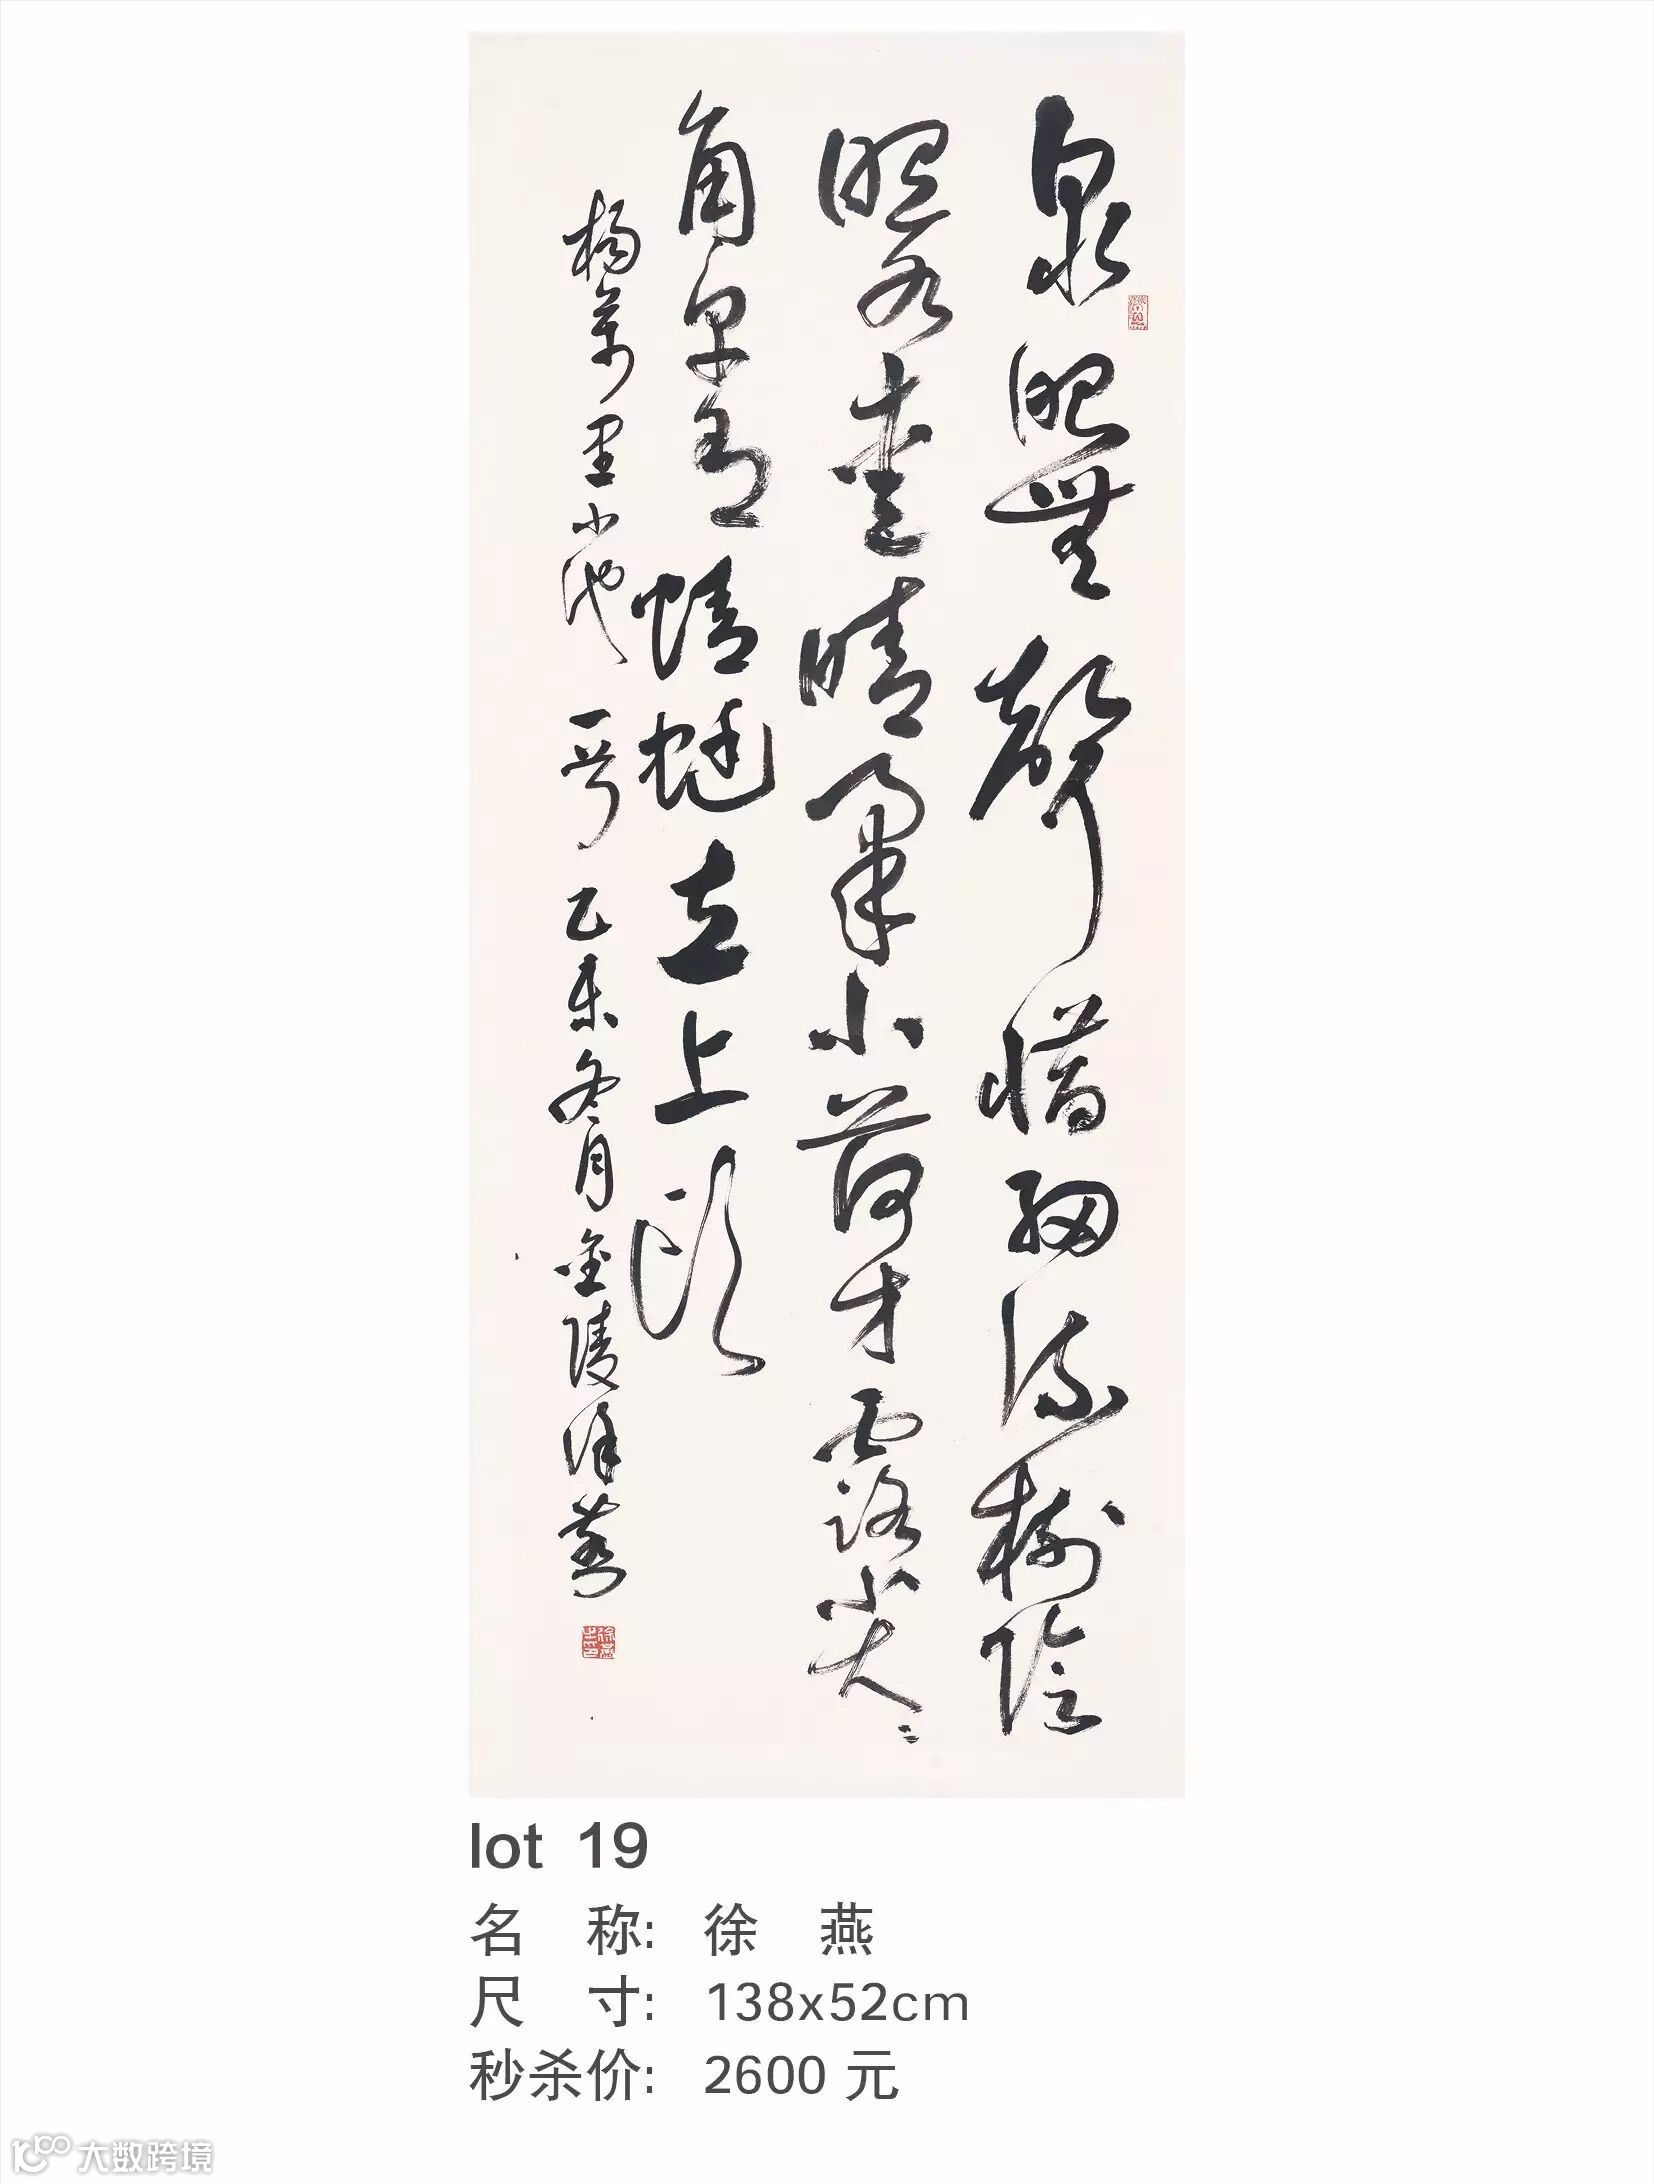 泉眼無聲惜細流樹陰
照水愛晴柔小荷才露尖〻
角早有蜻蜓立上頭
楊萬里小池一首 乙未冬月金陵徐燕
徐燕之印
lot 19
名 称: 徐 燕
尺 寸: 138x52cm
秒杀价: 2600 元
大数跨境